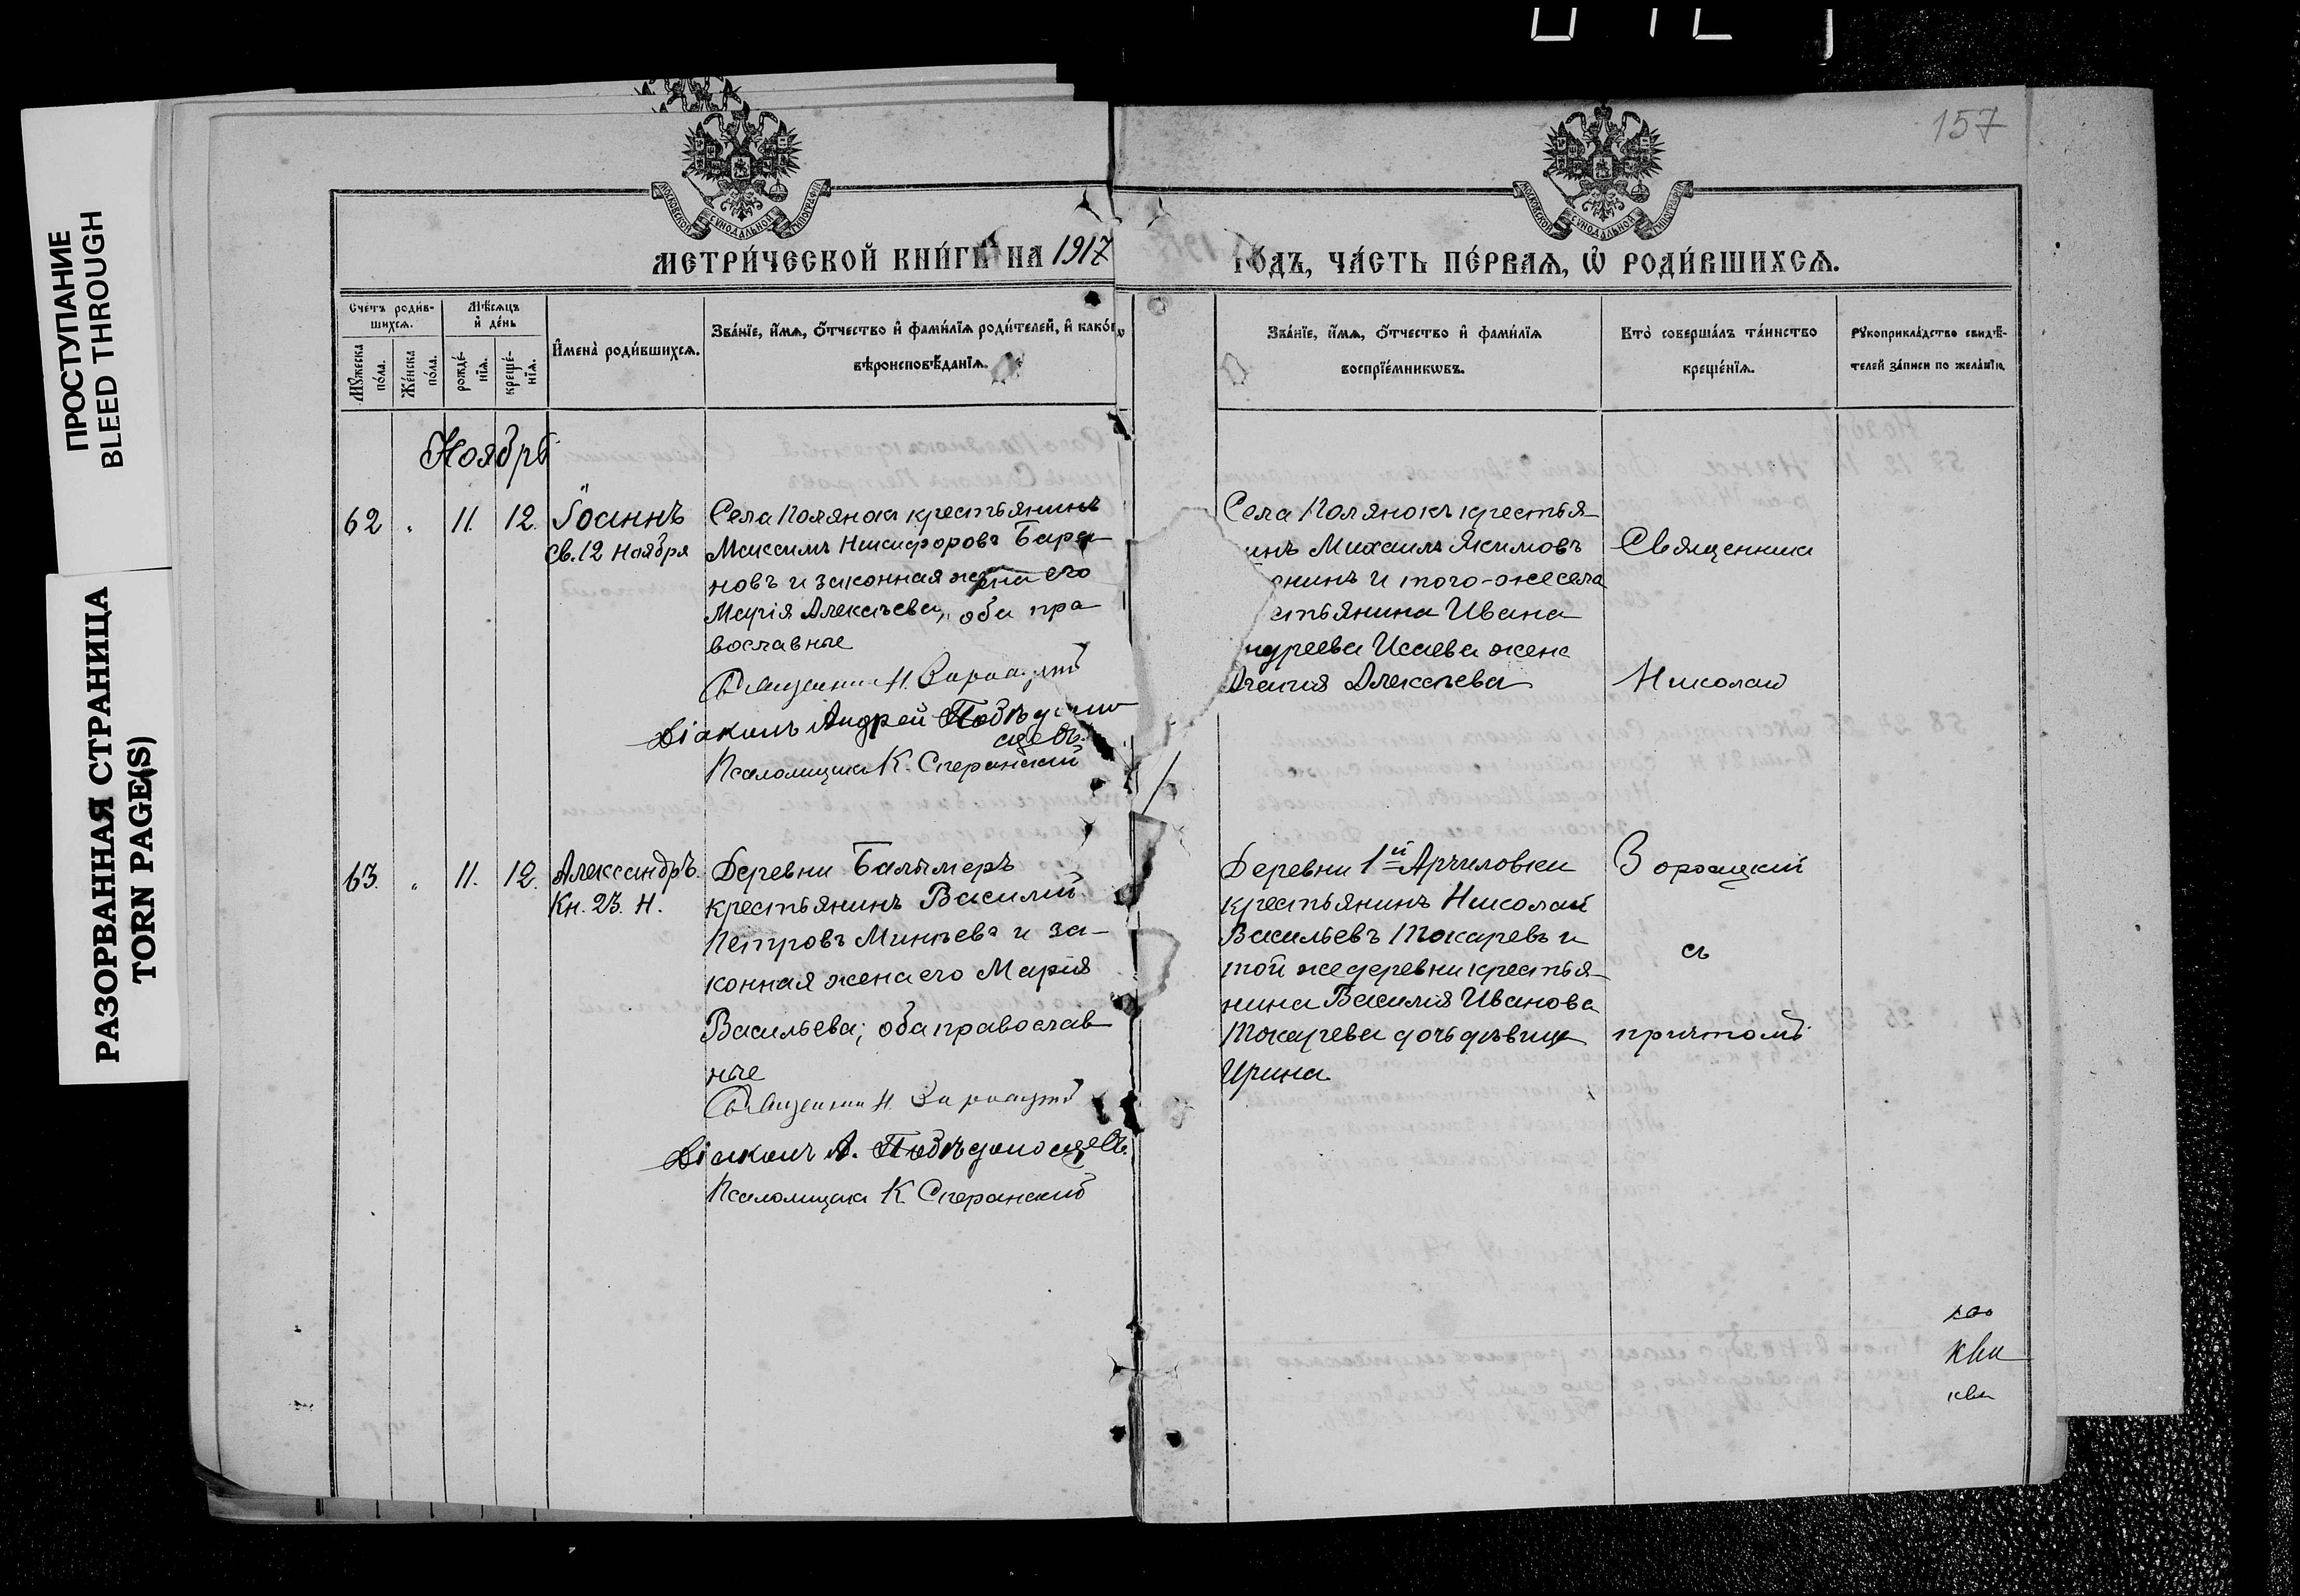 157
ПРОСТУПАНИЕ
BLEED THROUGH
РАЗОРВАННАЯ СТРАНИЦА
TORN PAGE(S)
МОСКОВСКОЙ СѴНОДАЛЬНОЙ ТИПОГРАФІИ
МОСКОВСКОЙ СѴНОДАЛЬНОЙ ТИПОГРАФІИ
МЕТРИ́ЧЕСКОЙ КНИ́ГИ НА 1917
ГОДЪ, ЧА́СТЬ ПЕ́РВАѦ, Ѡ РОДИ́ВШИХСѦ.
Счетъ роди́в-
шихсѧ.
Мѣсѧцъ
и де́нь
Мꙋжеска
по́ла.
Же́нска
по́ла.
рожде́-
нїѧ.
креще́-
нїѧ.
Имена̀ роди́вшихсѧ.
Зва́нїе, и́мѧ, о́тчество и фами́лїѧ роди́телей, и како́гѡ
вѣроисповѣ́данїѧ.
Зва́нїе, и́мѧ, о́тчество и фами́лїѧ
воспрїе́мникѡвъ.
Кто̀ соверша́лъ та́инство
креще́нїѧ.
Рꙋкоприкла́дство свидѣ́-
телей за́писи по жела́нїю.
Ноябрь
62 " 11. 12. Іоаннъ
св. 12 Ноября
Села Полянокъ крестьянинъ
Максимъ Никифоровъ Бара-
новъ и законная жена его
Марія Алексѣева, оба пра-
вославные
Священникъ Н.
Діаконъ Андрей Побѣдоно-
сцевъ.
Псаломщикъ К. Сперанскій
Села Полянокъ крестья-
инъ Михаилъ Якимовъ
нинъ и того-же села
стьянина Ивана
ндреева Исаева жена
Алексѣева
Священникъ
Николай
63. " 11. 12. Александръ.
Кн. 23. Н.
Деревни Балымеръ
крестьянинъ Василій
Петровъ Минѣевъ и за-
конная жена его Марія
Васильева; оба православ-
ные
Священникъ Н.
Діаконъ А. Побѣдоносцевъ.
Псаломщикъ К. Сперанскій
Деревни 1й Арчиловки
крестьянинъ Николай
Васильевъ Токаревъ и
той же деревни крестья-
нина Василія Иванова
Токарева дочь дѣвица
Ирина
съ
причтомъ